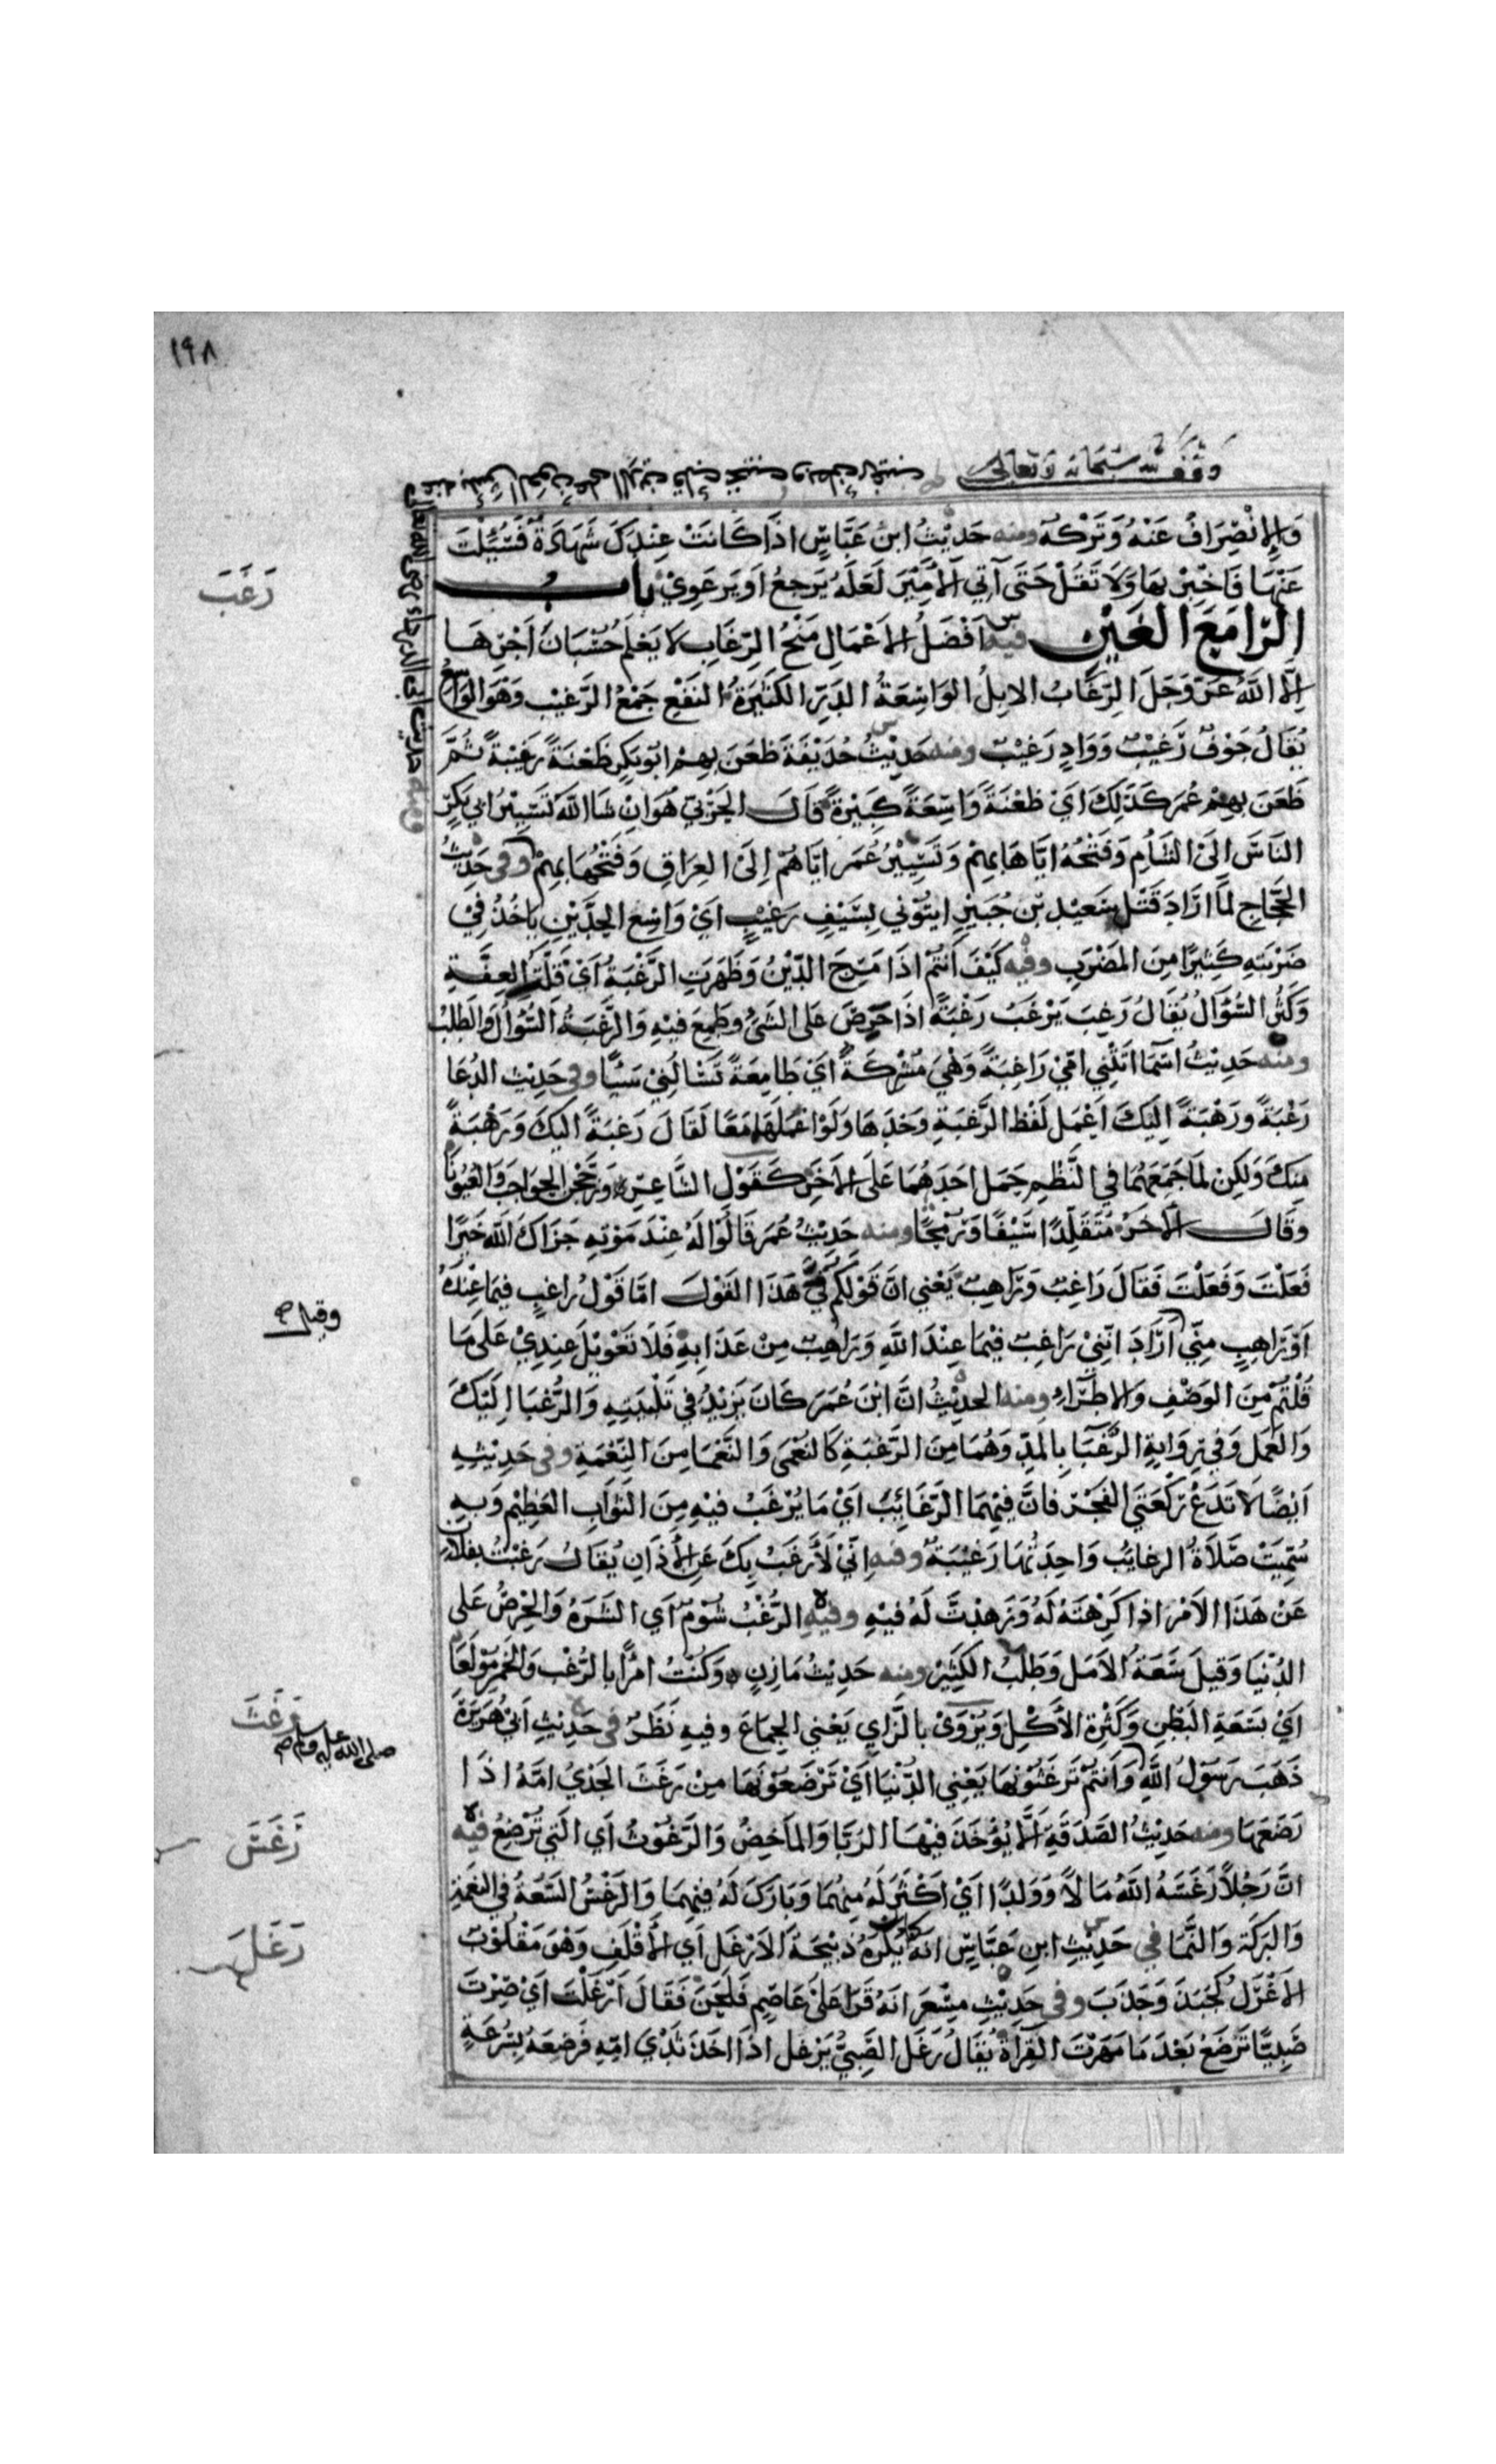 ١٩٨
وقف لله سبحانه وتعالى
والانصراف عنه وتركه ومنه حديث ابن عباس اذا كانت عندك شهادة فسئلت
رَغَبَ
عنها فاخبر بها ولا تقل حتى آتي الامير لعله يرجع او يرعوي باب
الرا مع الغين فيه افضل الاعمال منح الرغاب لا يعلم حسبان اجرها
الا الله عز وجل الرغاب الابل الواسعة الدر الكثيرة النفع جمع الرغيب وهو الواسع
يقال جوف رغيب وواد رغيب ومنه حديث حذيفة ظعن بهم ابو بكر ظعنة رغيبة ثم
ظعن بهم عمر كذلك اي ظعنة واسعة كبيرة قال الحربي هو ان شا الله تسيير ابي بكر
الناس الى الشام وفتحه اياها بهم وتسيير عمر اياهم الى العراق وفتحها بهم وفي حديث
الحجاج لما اراد قتل سعيد بن جبير ايتوني بسيف رغيب اي واسع الحدين ياخذ في
ضربته كثيرا من المضرب وفيه كيف انتم اذا مرج الدين وظهرت الرغبة اي قلت العفة
وكثر السؤال يقال رغب يرغب رغبة اذا حرص على الشئ وطمع فيه والرغبة السؤال والطلب
ومنه حديث اسما اتتني امي راغبة وهي مشركة اي طامعة تسالني شيا وفي حديث الدعا
رغبة ورهبة اليك اعمل لفظ الرغبة وحدها ولو اعملهما معا لقال رغبة اليك ورهبة
منك ولكن لما جمعهما في النظم حمل احدهما على الاخر كقول الشاعر وزججن الحواجب والعيونا
وقال الاخر متقلدا سيفا ورمحا ومنه حديث عمر قالوا له عند موته جزاك الله خيرا
فعلت وفعلت فقال راغب وراهب يعني ان قولكم في هذا القول اما قول راغب فيما عندي
وقيل صح
او راهب مني اراد انني راغب فيما عند الله وراهب من عذابه فلا تعويل عندي على ما
قلتم من الوصف والاطراء ومنه الحديث ان ابن عمر كان يزيد في تلبيته والرغبا اليك
والعمل وفي رواية الرغبا بالمد وهما من الرغبة كالنعمى والنعما من النعمة وفي حديثه
ايضا لا تدع ركعتي الفجر فان فيهما الرغائب اي ما يرغب فيه من الثواب العظيم وبه
سميت صلاة الرغايب واحدتها رغيبة وفيه اني لأرغب بك عن الأذان يقال رغبت بفلان
عن هذا الامر اذا كرهته له وزهدت له فيه وفيه الرغب شوم اي الشره والحرص على
الدنيا وقيل سعة الامل وطلب الكثير ومنه حديث مازن وكنت امرأ بالرغب والخمر مولعا
اي بسعة البطن وكثرة الأكل ويروى بالزاي يعني الجماع وفيه نظر في حديث ابي هريرة
رغث
صلى الله عليه وسلم صح
ذهب رسول الله وانتم ترغثونها يعني الدنيا اي ترضعونها من رغث الجدي امه اذا
رضعها ومنه حديث الصدقة الا يؤخذ فيها الربا والماخض والرغوث اي التي ترضع فيه
رَغَسَ
ان رجلا رغسه الله مالا وولدا اي اكثر له منهما وبارك له فيهما والرغس السعة في النعمة
والبركة والنما في حديث ابن عباس انه كان يكره ذبيحة الارغل اي الأقلف وهو مقلوب
رَغَلَ
الاغرل كجبذ وجذب وفي حديث مسعر انه قرا على عاصم فلحن فقال ارغلت اي صرت
صبيا ترضع بعد ما مهرت القراة يقال رغل الصبي يرغل اذا اخذ ثدي امه فرضعه بسرعة